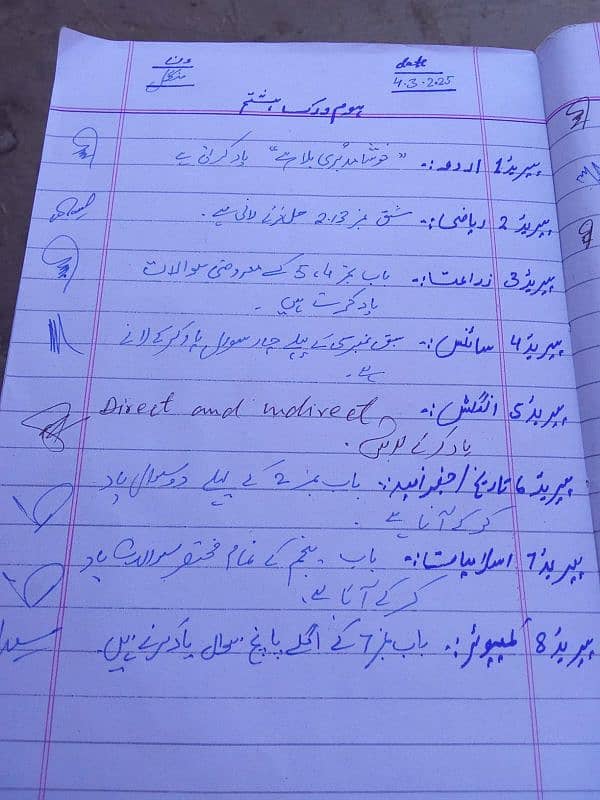 دن date
منگل 4.3.2025
ہوم ورک ہشتم
پیریڈ 1 اردو:- "خوشامد بری بلا ہے" یاد کرنی ہے
پیریڈ 2 ریاضی:- مشق نمبر 2.13 حل کرکے لانی ہے۔
پیریڈ 3 زراعت:- باب نمبر 5،4 کے معروضی سوالات
یاد کرنے ہیں۔
پیریڈ 4 سائنس:- سبق نمبر کے پہلے چار سوال یاد کرکے لانے
ہے۔
پیریڈ 5 انگلش:- Direct and indirect
یاد کرکے لائیں۔
پیریڈ 6 تاریخ/جغرافیہ:- باب نمبر 2 کے پہلے دو سوال یاد
کرکے آنا ہے۔
پیریڈ 7 اسلامیات:- باب پنجم کے تمام مختصر سوالات یاد
کرکے آنا ہے۔
پیریڈ 8 کمپیوٹر:- باب نمبر 7 کے اگلے پانچ سوال یاد کرنے ہیں۔